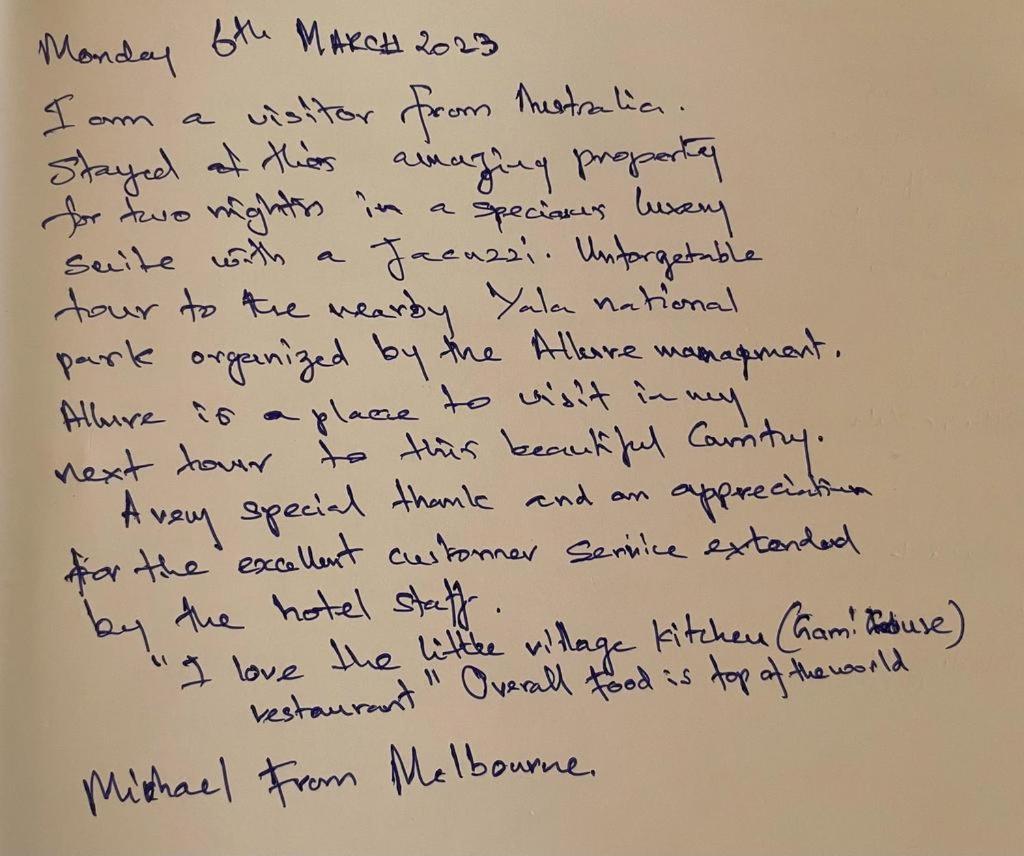 Monday 6th MARCH 2023
I am a visitor from Australia.
Stayed at this amazing property
for two nights in a specious luxury
suite with a Jacuzzi. Unforgetable
tour to the nearby Yala national
park organized by the Allure management.
Allure is a place to visit in my
next tour to this beautiful Country.
A very special thank and an appreciation
for the excellent customer service extended
by the hotel staff.
"I love the little village kitchen (Gami House)
restaurant" Overall food is top of the world
Michael From Melbourne.